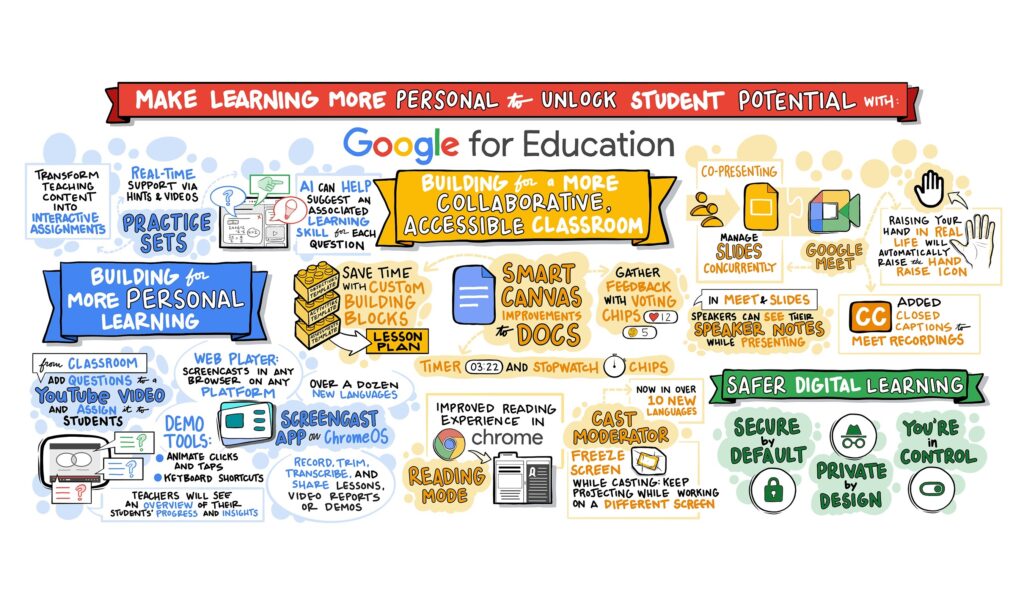 MAKE LEARNING MORE PERSONAL to UNLOCK STUDENT POTENTIAL WITH:
Google for Education
TRANSFORM
TEACHING
CONTENT
INTO
INTERACTIVE
ASSIGNMENTS
REAL-TIME
SUPPORT VIA
HINTS & VIDEOS
PRACTICE
SETS
AI CAN HELP
SUGGEST AN
ASSOCIATED
LEARNING
SKILL for EACH
QUESTION
BUILDING for
MORE PERSONAL
LEARNING
from CLASSROOM
ADD QUESTIONS to a
YouTube VIDEO
AND ASSIGN it to
STUDENTS
WEB PLAYER:
SCREENCASTS IN ANY
BROWSER ON ANY
PLATFORM
OVER A DOZEN
NEW LANGUAGES
DEMO
TOOLS:
ANIMATE CLICKS
AND TAPS
KEYBOARD SHORTCUTS
SCREENCAST
APP on ChromeOS
RECORD, TRIM,
TRANSCRIBE, AND
SHARE LESSONS,
VIDEO REPORTS
OR DEMOS
TEACHERS WILL SEE
AN OVERVIEW OF THEIR
STUDENTS' PROGRESS AND INSIGHTS
BUILDING for a MORE
COLLABORATIVE,
ACCESSIBLE CLASSROOM
SAVE TIME
WITH CUSTOM
BUILDING
BLOCKS
TEMPLATE
TEMPLATE
TEMPLATE
LESSON
PLAN
SMART
CANVAS
IMPROVEMENTS
to DOCS
GATHER
FEEDBACK
WITH VOTING
CHIPS 12
5
TIMER 03:22 AND STOPWATCH CHIPS
IMPROVED READING
EXPERIENCE IN
chrome
READING
MODE
NOW IN OVER
10 NEW
LANGUAGES
CAST
MODERATOR
FREEZE
SCREEN
WHILE CASTING: KEEP
PROJECTING WHILE WORKING
ON A DIFFERENT SCREEN
CO-PRESENTING
MANAGE
SLIDES
CONCURRENTLY
GOOGLE
MEET
RAISING YOUR
HAND IN REAL
LIFE WILL
AUTOMATICALLY
RAISE the HAND
RAISE ICON
IN MEET & SLIDES
SPEAKERS CAN SEE THEIR
SPEAKER NOTES
WHILE PRESENTING
CC
ADDED
CLOSED
CAPTIONS to
MEET RECORDINGS
SAFER DIGITAL LEARNING
SECURE
by
DEFAULT
PRIVATE
by
DESIGN
YOU'RE
in
CONTROL